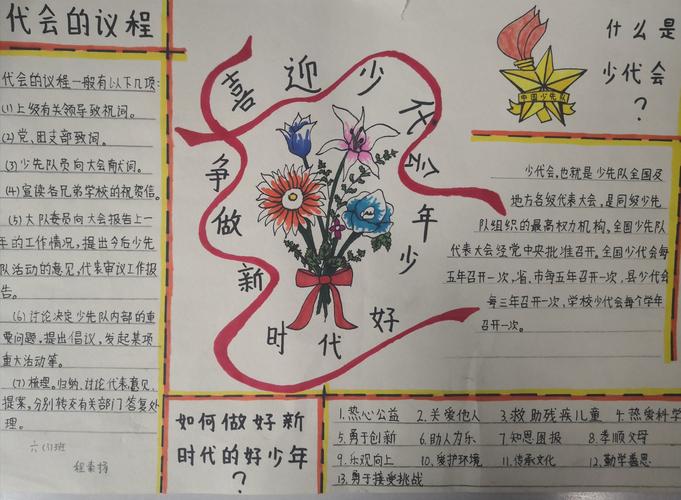 代会的议程
代会的议程一般有以下几项:
(1)上级有关领导致祝词。
(2)党、团支部致词。
(3)少先队员向大会献词。
(4)宣读各兄弟学校的祝贺信。
(5)大队委员向大会报告上一
年的工作情况，提出今后少先
队活动的意见，代表审议工作报
告。
(6)讨论决定少先队内部的重
要问题，提出倡议，发起某项
重大活动等。
(7)梳理、归纳、讨论代表意见、
提案，分别转交有关部门答复处
理。
六(1)班
喜迎少代会
争做新时代好少年
中国少先队
什么是
少代会
?
少代会，也就是少先队全国及
地方各级代表大会，是同级少先
队组织的最高权力机构。全国少先队
代表大会经党中央批准召开。全国少代会每
五年召开一次，省、市每五年召开一次，县少代会
每三年召开一次，学校少代会每个学年
召开一次。
如何做好新
时代的好少年
?
1.热心公益 2.关爱他人 3.救助残疾儿童 4.热爱科学
5.勇于创新 6.助人为乐 7.知恩图报 8.孝顺父母
9.乐观向上 10.爱护环境 11.传承文化 12.勤学善思
13.勇于接受挑战